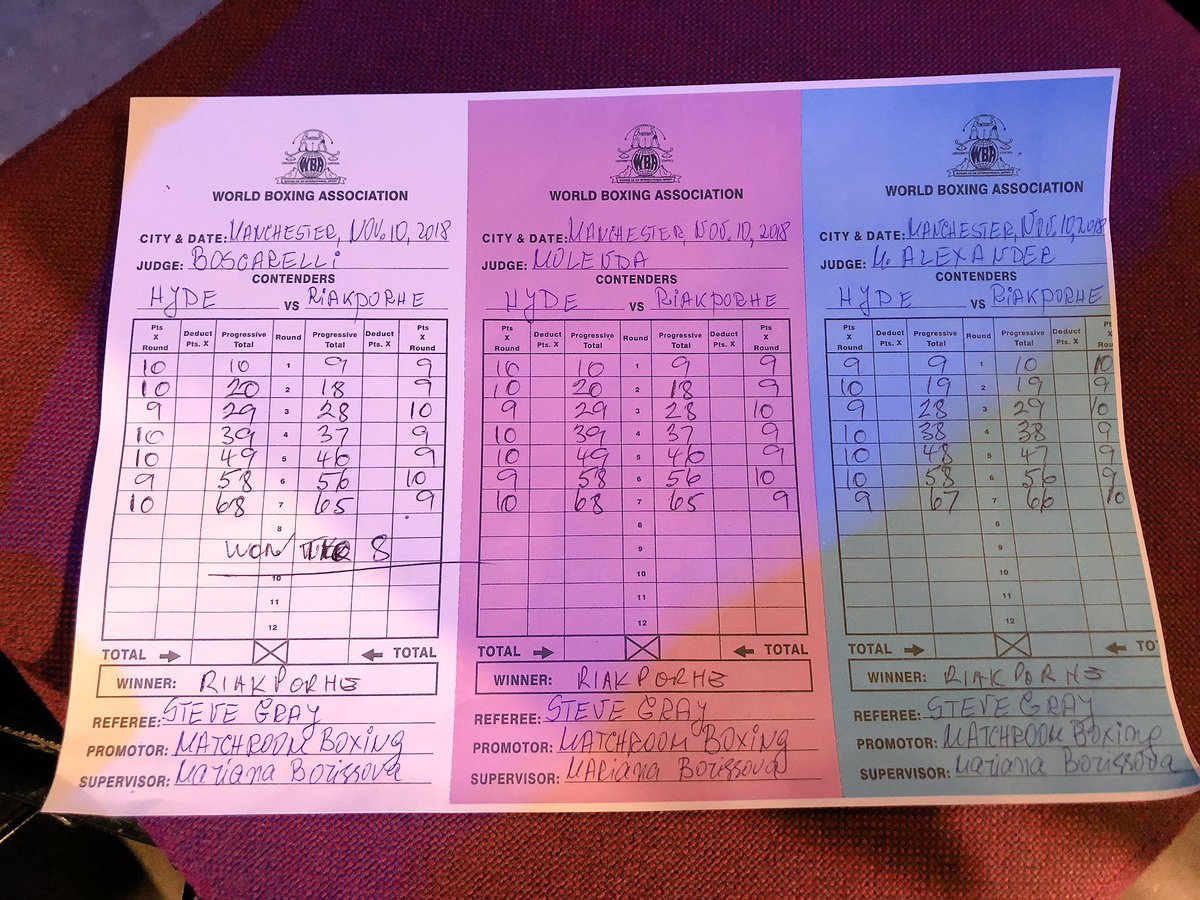 WBA
WORLD BOXING ASSOCIATION
CITY & DATE: MANCHESTER, NOV. 10, 2018
JUDGE: BOSCARELLI
CONTENDERS
HYDE VS RIAKPORHE
Pts X Round Deduct Pts. X Progressive Total Round Progressive Total Deduct Pts. X Pts X Round
10 10 1 9 9
10 20 2 18 9
9 29 3 28 10
10 39 4 37 9
10 49 5 46 9
9 58 6 56 10
10 68 7 65 9
8
WON TKO 8
10
11
12
TOTAL TOTAL
WINNER: RIAKPORHE
REFEREE: STEVE GRAY
PROMOTOR: MATCHROOM BOXING
SUPERVISOR: Mariana Borissova
WBA
WORLD BOXING ASSOCIATION
CITY & DATE: MANCHESTER, NOV. 10, 2018
JUDGE: MOLENDA
CONTENDERS
HYDE VS RIAKPORHE
Pts X Round Deduct Pts. X Progressive Total Round Progressive Total Deduct Pts. X Pts X Round
10 10 1 9 9
10 20 2 18 9
9 29 3 28 10
10 39 4 37 9
10 49 5 46 9
9 58 6 56 10
10 68 7 65 9
8
9
10
11
12
TOTAL TOTAL
WINNER: RIAKPORHE
REFEREE: STEVE GRAY
PROMOTOR: MATCHROOM BOXING
SUPERVISOR: MARiana Borissova
WBA
WORLD BOXING ASSOCIATION
CITY & DATE: MANCHESTER, NOV. 10, 2018
JUDGE: ALEXANDER
CONTENDERS
HYDE VS RIAKPORHE
Pts X Round Deduct Pts. X Progressive Total Round Progressive Total Deduct Pts. X Pts X
9 9 1 10 10
10 19 2 19 9
9 28 3 29 10
10 38 4 38 9
10 48 5 47 9
10 58 6 56 9
9 67 7 66 10
8
9
10
11
12
TOTAL
WINNER: RIAKPORHE
REFEREE: STEVE GRAY
PROMOTOR: MATCHROOM BOXING
SUPERVISOR: Mariana Borissova